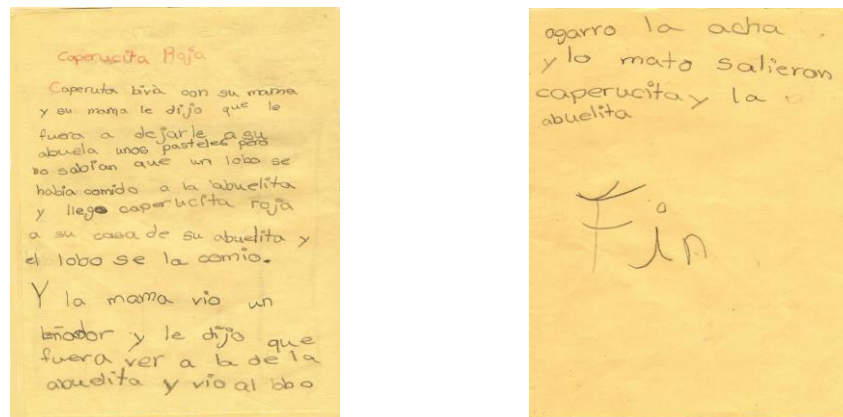 Caperucita Roja
Caperuta bivà con su mama
y su mama le dijo que le
fuera a dejarle a su
abuela unos pasteles pero
no sabian que un lobo se
habia comido a la abuelita
y llego caperucita roja
a su casa de su abuelita y
el lobo se la comio.
Y la mama vio un
leñador y le dijo que
fuera ver a la de la
abuelita y vio al lobo
agarro la acha
y lo mato salieron
caperucita y la
abuelita
Fin